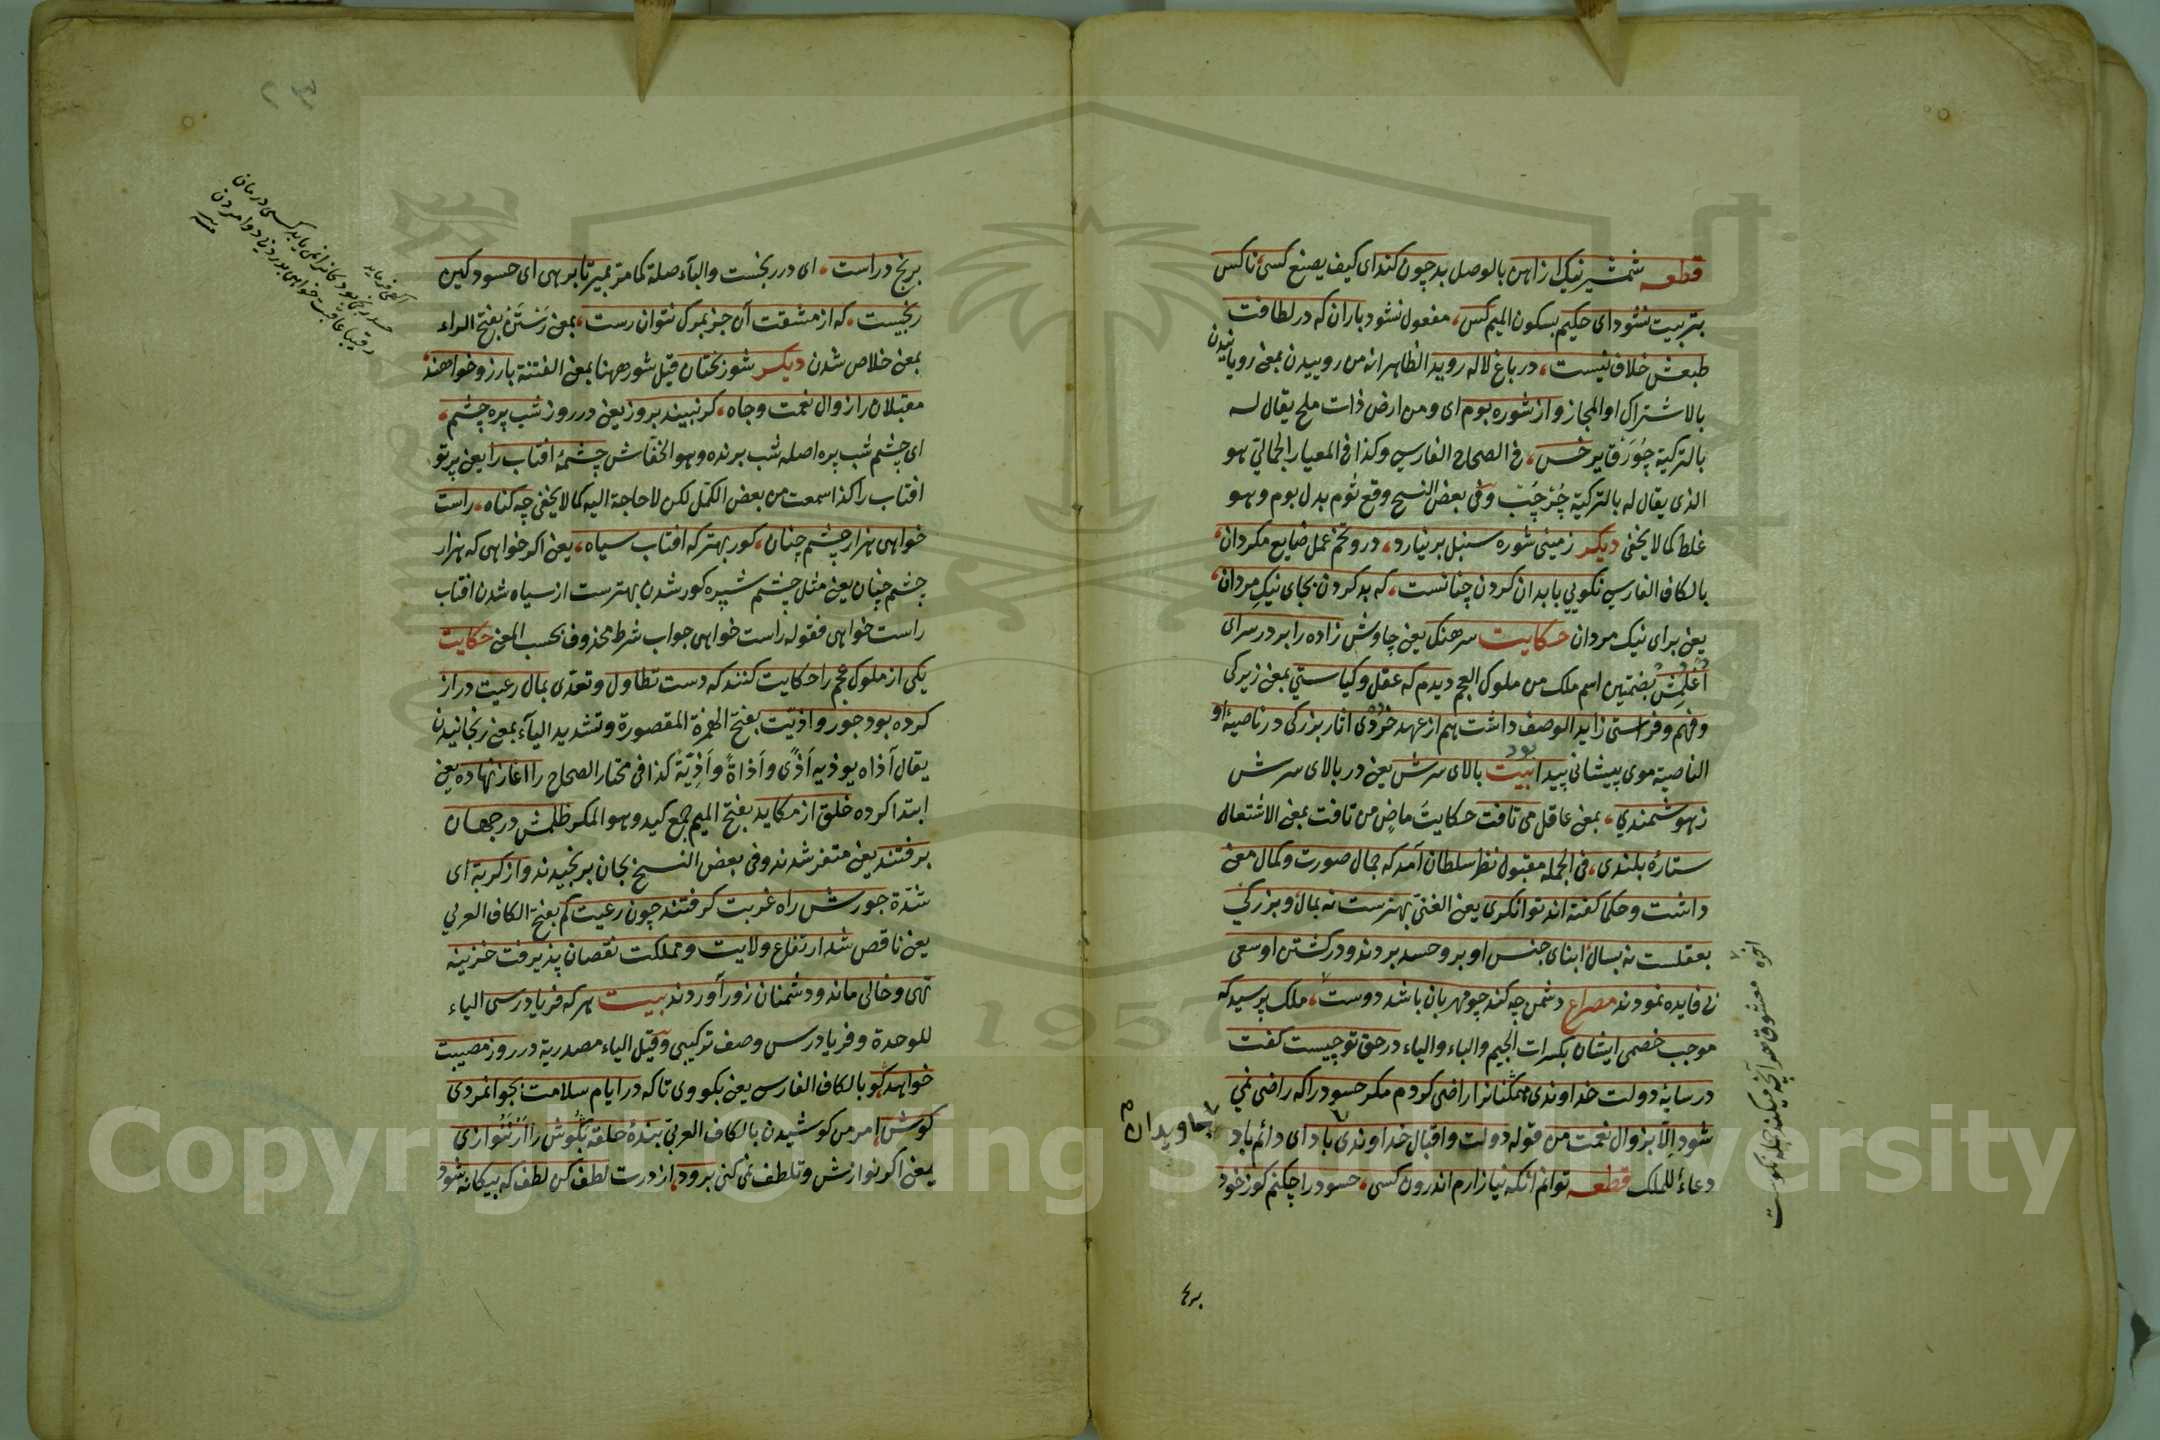 قطعه شمشیر نیک از اهن بالوصل بد چون کند ای کیف یصنع کسی ناکس
بتربیت نشود ای حکیم بسکون المیم کس، مفعول نشود باران که در لطافت
طبعش خلاف نیست، در باغ لاله روید الظاهر انه من روییدن بمعنی رویانیدن
بالاشتراک او المجاز و از شوره بوم ای و من ارض ذات ملح یقال له
بالترکیة چورق یر خس، فی الصحاح الفارسی وکذا فی المعیار الجمالی هو
الذی یقال له بالترکیة چرچپ وفی بعض النسخ وقع شوم بدل بوم وهو
غلط کما لا یخفی دیکر زمینی شوره سنبل بر نیارد، درو تخم عمل ضایع مکردان،
بالکاف الفارسی نکویی با بدان کردن چنانست، که بد کردن بجای نیک مردان،
یعنی برای نیک مردان حکایت سرهنک یعنی چاوش زاده را بر در سرای
اغلمش بضمتین اسم ملک من ملوک العجم دیدم که عقل و کیاستی بمعنی زیرکی
وفهم وفراستی زاید الوصف داشت هم از عهد خردی اثار بزرکی در ناصیهٔ او
الناصیة موی پیشانی پیدا بود بیت بالای سرش یعنی در بالای سرش
زهوشمندی، بمعنی عاقل می تافت حکایت ماض من تافت بمعنی الاشتعال
ستارهٔ بلندی، فی الجمله مقبول نظر سلطان آمد که جمال صورت وکمال معنی
داشت وحکما کفته اند توانکری یعنی الغنی بهنرست نه بمال و بزرکی
بعقلست نه بسال ابنای جنس او برو حسد بردند و در کشتن او سعی
بی فایده نمودند مصراع دشمن چه کند چو مهربان باشد دوست، ملک پرسید که
موجب خصمی ایشان بکسرات الجیم والباء والیاء در حق تو چیست کفت
در سایهٔ دولت خداوندی همکنانرا راضی کردم مکر حسود را که راضی نمی
شود الا بزوال نعمت من قوله دولت واقبال خداوندی باد ای دائم باد
دعاء للملک قطعه توانم انکه نیازارم اندرون کسی، حسود را چکنم کو ز خود
جاویدان
برنج
برنج دراست، ای در رنجست والباء صلة کما مر بمیر تا برهی ای حسود کین
رنجیست، که از مشقت آن جز بمرک نتوان رست، بمعنی رستن بفتح الراء
بمعنی خلاص شدن دیکر شوربختان قیل شور ههنا بمعنی الفتنة بارزو خواهند،
مقبلان را زوال نعمت وجاه، کر نبیند بروز یعنی در روز شب پره چشم،
ای چشم شب پره اصله شب پرنده وهو الخفاش چشمهٔ افتاب را یعنی پرتو
افتاب را کذا سمعت من بعض الکمل لکن لا حاجة الیه کما لا یخفی چه کناه، راست
خواهی هزار چشم چنان، کور بهتر که افتاب سیاه، یعنی اکر خواهی که هزار
چشم چنان یعنی مثل چشم شپره کور شدن بهترست از سیاه شدن افتاب
راست خواهی فقوله راست خواهی جواب شرط محذوف بحسب المعنی حکایت
یکی از ملوک عجم را حکایت کنند که دست تطاول وتعدی بمال رعیت دراز
کرده بود جور واذیت بفتح الهمزة المقصورة وتشدید الیاء بمعنی رنجانیدن
یقال آذاه یوذیه اذی واذاة واذیة کذا فی مختار الصحاح را اغاز نهاده یعنی
ابتدا کرده خلق از مکاید بفتح المیم جمع کید وهو المکر ظلمش در جهان
برفتند یعنی متفرق شدند وفی بعض النسخ بجان برنجیدند واز کربة ای
شدة جورش راه غربت کرفتند چون رعیت کم بفتح الکاف العربی
یعنی ناقص شد ارتفاع ولایت ومملکت نقصان پذیرفت خزینه
تهی وخالی ماند ودشمنان زور آوردند بیت هر که فریادرسی الیاء
للوحدة وفریادرس وصف ترکیبی وقیل الیاء مصدریة در روز مصیبت
خواهد کو بالکاف الفارسی یعنی بکو وی تا که در ایام سلامت بجوانمردی
کوش، امر من کوشیدن بالکاف العربی بندهٔ حلقه بکوش را ار ننوازی
یعنی اکر نوازش وتلطف نمی کنی برود، از درت لطف کن لطف که بیکانه شود